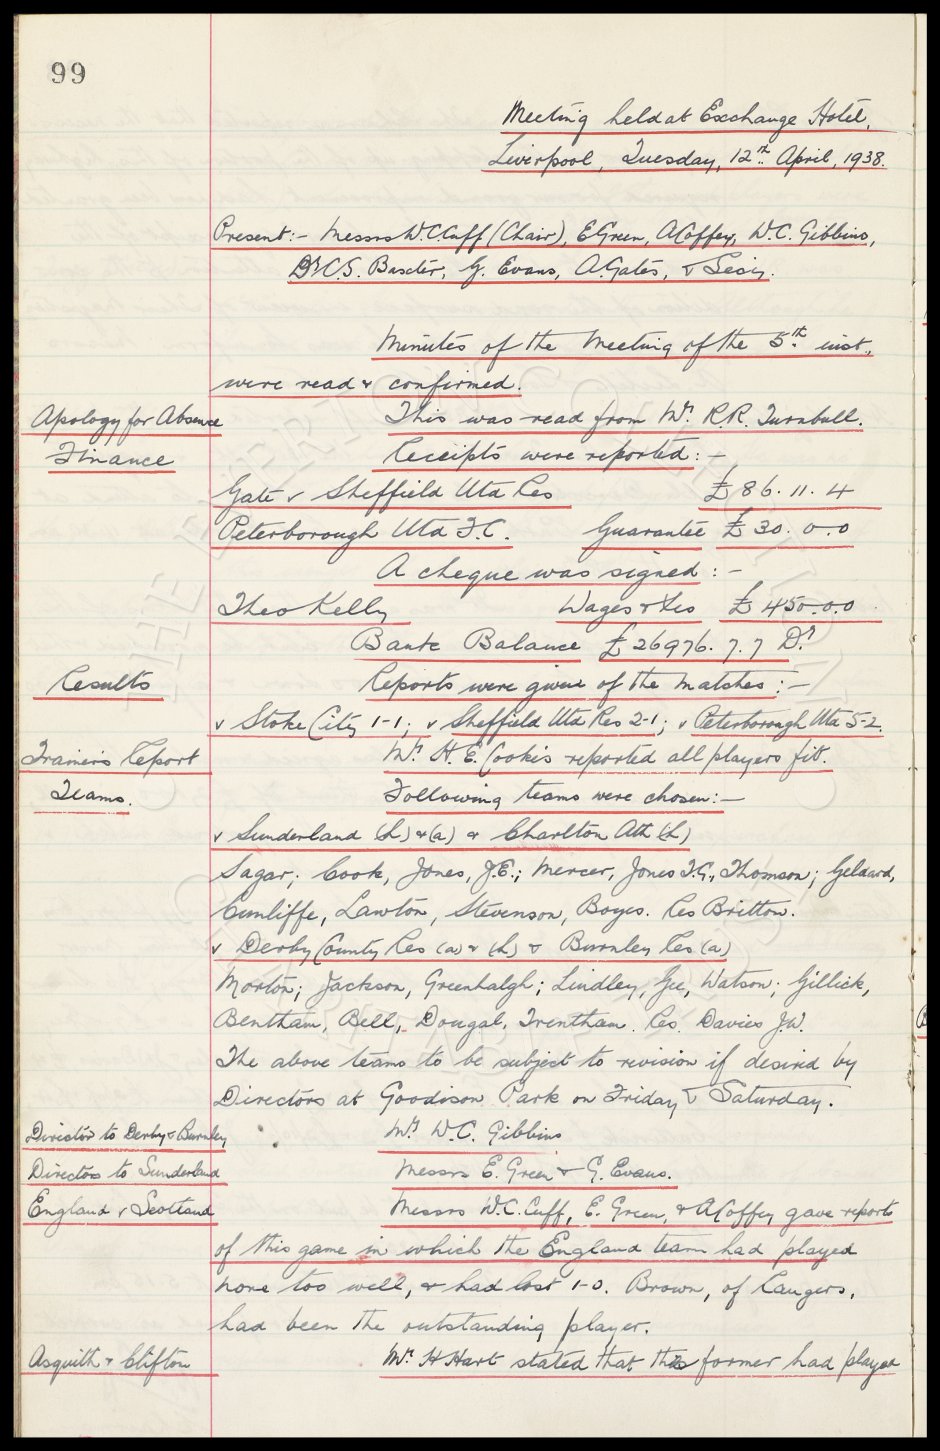 99
Meeting held at Exchange Hotel,
Liverpool, Tuesday, 12th. April, 1938.
Present:- Messrs W.C. Cuff (Chair), E Green, A Coffey, W.C. Gibbins,
Dr C.S. Baxter, G. Evans, A. Gates, & Secy.
Minutes of the Meeting of the 5th. inst.,
were read & confirmed.
Apology for Absence This was read from Mr R.R. Turnbull.
Finance Receipts were reported:-
Gate v Sheffield Utd Res £86.11.4
Peterborough Utd F.C. Guarantee £30.0.0
A cheque was signed:-
Theo Kelly Wages &c £450.0.0
Bank Balance £26976.7.7 Dr
Results Reports were given of the matches:-
v Stoke City 1-1; v Sheffield Utd Res 2-1; v Peterborough Utd 5-2.
Trainer's Report Mr H. E. Cooke's reported all players fit.
Teams. Following teams were chosen:-
v Sunderland (h) & (a) & Charlton Ath (h)
Sagar; Cook, Jones, J.E.; Mercer, Jones T.G., Thomson; Geldard,
Cunliffe, Lawton, Stevenson, Boyes. Res Britton.
v Derby County Res (a) & (h) & Burnley Res (a)
Morton; Jackson, Greenhalgh; Lindley, Gee, Watson; Gillick,
Bentham, Bell, Dougal, Trentham. Res. Davies J.W.
The above teams to be subject to revision if desired by
Directors at Goodison Park on Friday & Saturday.
Director to Derby & Burnley Mr W.C. Gibbins
Directors to Sunderland Messrs E. Green & G. Evans.
England v Scotland Messrs W.C. Cuff, E. Green, & A Coffey gave reports
of this game in which the England team had played
none too well, & had lost 1-0. Brown, of Rangers,
had been the outstanding player.
Asquith & Clifton Mr H Hart stated that the former had played